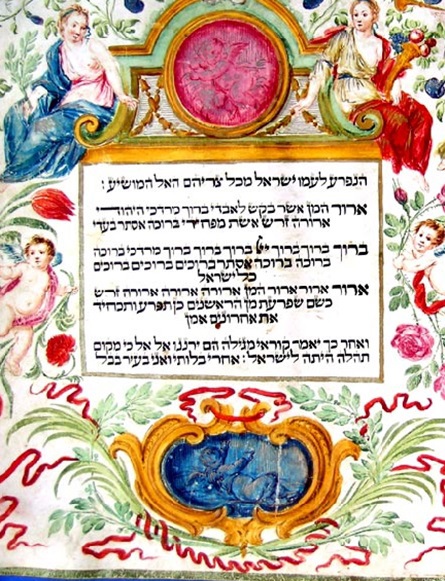 הנפרע לעמו ישראל מכל צריהם האל המושיע :
ארור המן אשר בקש לאבדי ברוך מרדכי היהודי
ארורה זרש אשת מפחידי ברוכה אסתר בעדי
ברוך ברוך ברוך ברוך ברוך ברוך מרדכי ברוכה
ברוכה ברוכה אסתר ברוכים ברוכים ברוכים
כל ישראל
ארור ארור ארור המן ארורה ארורה ארורה זרש
כשם שפרעת מן הראשונים כן תפרע ותמחיד
את אחרונים אמן
ואחר כך יאמר קוראי מגילה הם ירננו אל אל כי מקום
תהלה היתה לישראל : אחרי בלותי ואני בעיר בבל